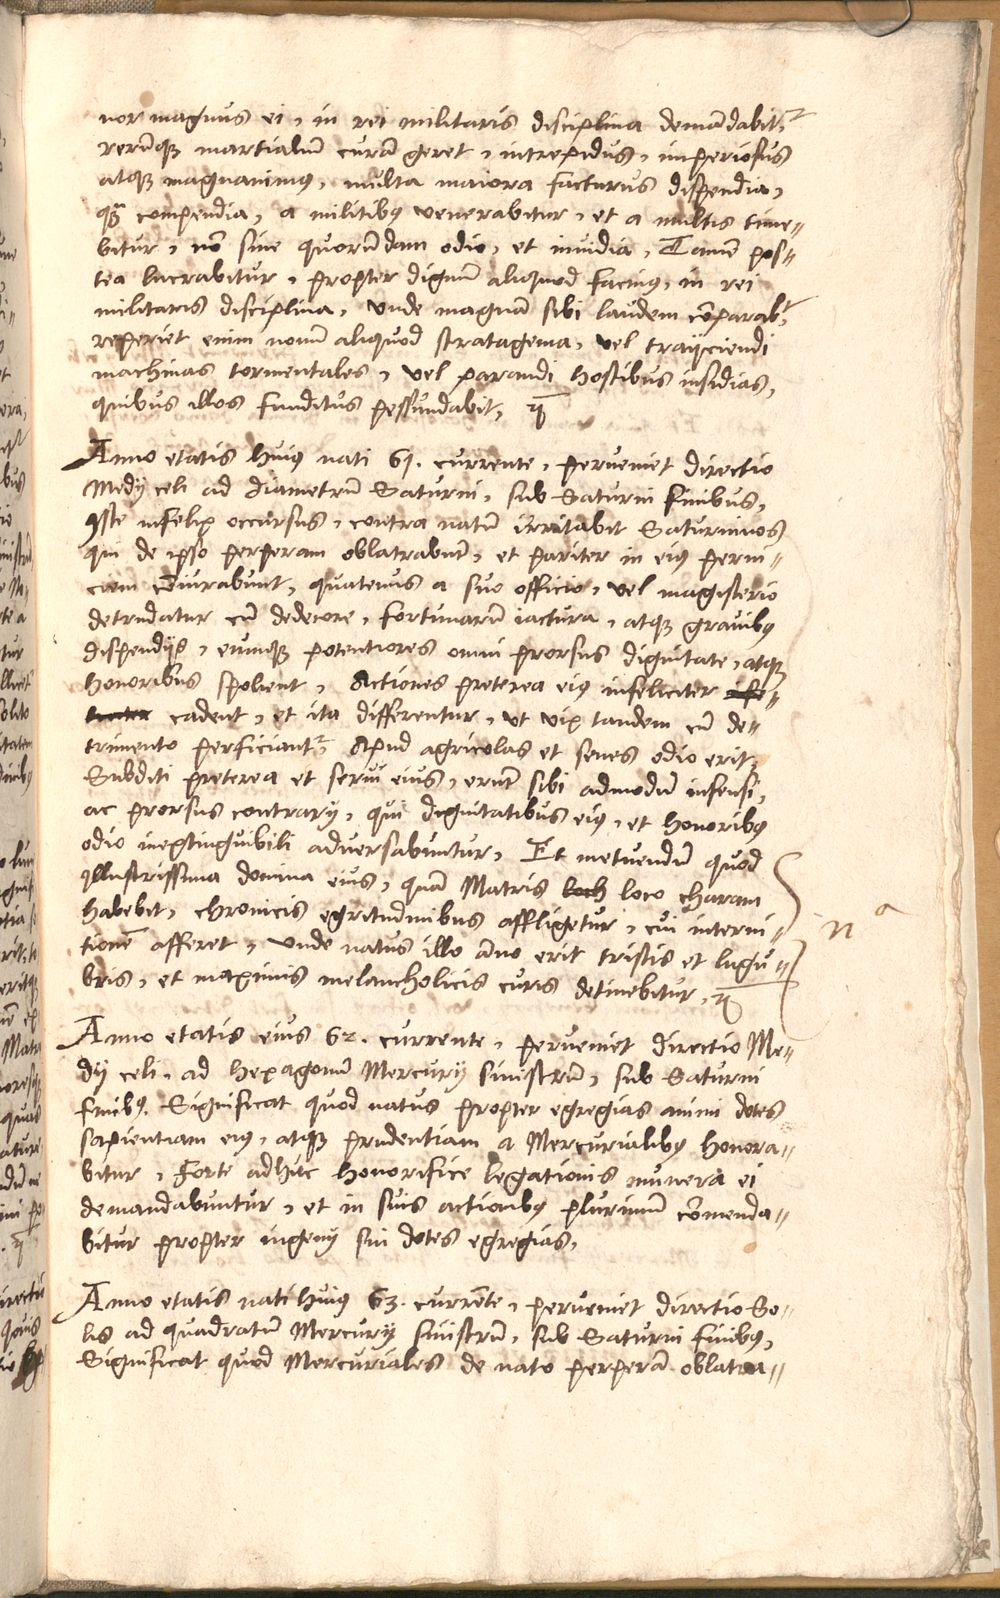 nor magnus ei, in rei militaris disciplina demādabit᷑,
rerūqꝫ martialiū curā geret, intrepidus, imperiosus
atqꝫ magnanimꝰ, multa maiora facturus dispendia,
qꝫ̄ compendia, a militibꝰ venerabitur, et a multis time=
bitur, nō sine quorūdam odio, et inuidia, Tamē pos=
tea lucrabitur, propter dignū aliquod facinꝰ, in rei
militaris disciplina, vnde magnā sibi laudem cōparabᵗ,
reperiet enim nouū aliquod stratagema, vel traijciendi
machinas tormentales, vel parandi hostibus insidias,
quibus illos funditus pessundabit,
Anno etatis huiꝰ nati 61. currente, perueniet directio
Medij celi ad diametrū Saturni, sub Saturni finibus,
Iste infelix occursus, contra natū irritabit Saturninos
qui de ipso perperam oblatrabūt, et pariter in eiꝰ perni=
ciem cōiurabunt, quatenus a suo officio, vel magisterio
detrudatur cū dedecore, fortunarū iactura, atqꝫ grauibꝰ
dispendijs, eumqꝫ potentiores omni prorsus dignitate, atqꝫ
honoribus spolient, Actiones preterea eiꝰ infeliciter
cadent, et ita differentur, vt vix tandem cū de=
trimento perficiant᷑, Apud agricolas et senes odio erit,
Subditi preterea et serui eius, erūt sibi admodū infensi,
ac prorsus contrarij, qui dignitatibus eiꝰ, et honoribꝰ
odio inextinguibili aduersabuntur, Et metuendū quod
Illustrissima domina eius, quā Matris loco charam
habebit, chronicis egritudinibus affligetur, cui interni=
tionē afferet, vnde natus illo āno erit tristis et lugu=
bris, et maximis melancholicis curis detinebitur,
Anno etatis eius 62. currente, perueniet directio Me=
dij celi, ad hexagonū Mercurij sinistrū, sub Saturni
finibꝰ. Significat quod natus propter egregias animi dotes
sapientiam eiꝰ, atqꝫ prudentiam a Mercurialibꝰ honora=
bitur, Forte adhuc honorifice legationis munera ei
demandabuntur, et in suis actionibꝰ plurimū cōmenda=
bitur propter ingenij sui dotes egregias,
Anno etatis nati huiꝰ 63. currēte, perueniet directio So=
lis ad quadratū Mercurij sinistrū, sub Saturni finibꝰ,
Significat quod Mercuriales de nato perperā oblatra=